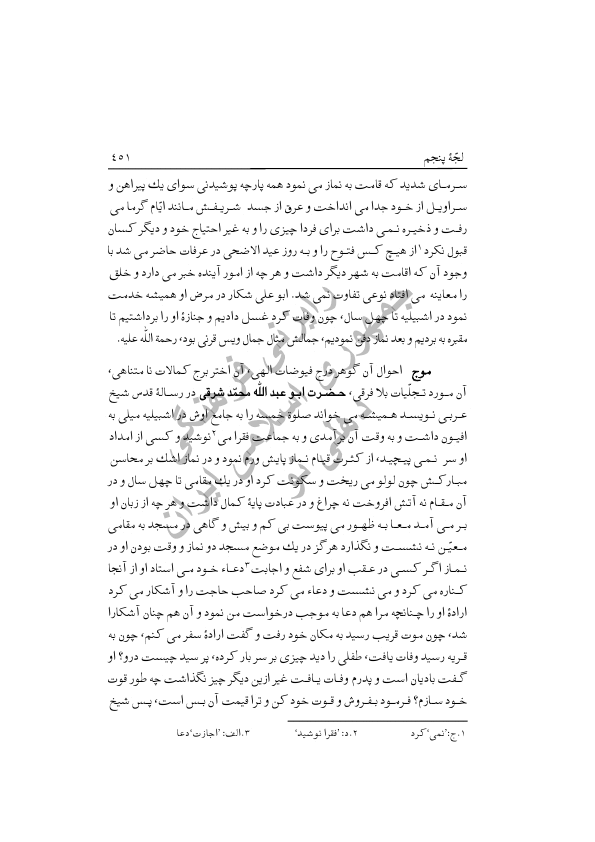 لجّهٔ پنجم ٤٥١
سرمای شدید که قامت به نماز می نمود همه پارچه پوشیدنی سوای یك پیراهن و
سراویل از خود جدا می انداخت و عرق از جسد شریفش مانند ایّام گرما می
رفت و ذخیره نمی داشت برای فردا چیزی را و به غیر احتیاج خود و دیگر کسان
قبول نکرد۱ از هیچ کس فتوح را و به روز عید الاضحی در عرفات حاضر می شد با
وجود آن که اقامت به شهر دیگر داشت و هر چه از امور آینده خبر می دارد و خلق
را معاینه می افتاد نوعی تفاوت نمی شد. ابو علی شکار در مرض او همیشه خدمت
نمود در اشبیلیه تا چهل سال، چون وفات کرد غسل دادیم و جنازهٔ او را برداشتیم تا
مقبره به بردیم و بعد نماز دفن نمودیم، جمالش مثال جمال ویس قرنی بود، رحمة الله علیه.
موج احوال آن گوهر درج فیوضات الهی، آن اختر برج کمالات نا متناهی،
آن مورد تجلّیات بلا فرقی، حضرت ابو عبد الله محمّد شرقی در رسالهٔ قدس شیخ
عربی نویسد همیشه می خواند صلوة خمسه را به جامع اوش در اشبیلیه میلی به
افیون داشت و به وقت آن برآمدی و به جماعت فقرا می۲ نوشید و کسی از امداد
او سر نمی پیچید، از کثرت قیام نماز پایش ورم نمود و در نماز اشك بر محاسن
مبارکش چون لولو می ریخت و سکونت کرد او در یك مقامی تا چهل سال و در
آن مقام نه آتش افروخت نه چراغ و در عبادت پایهٔ کمال داشت و هر چه از زبان او
بر می آمد معا به ظهور می پیوست بی کم و بیش و گاهی در مسجد به مقامی
معیّن نه نشست و نگذارد هرگز در یك موضع مسجد دو نماز و وقت بودن او در
نماز اگر کسی در عقب او برای شفع و اجابت۳ دعاء خود می استاد او از آنجا
کناره می کرد و می نشست و دعاء می کرد صاحب حاجت را و آشکار می کرد
ارادهٔ او را چنانچه مرا هم دعا به موجب درخواست من نمود و آن هم چنان آشکارا
شد، چون موت قریب رسید به مکان خود رفت و گفت ارادهٔ سفر می کنم، چون به
قریه رسید وفات یافت، طفلی را دید چیزی بر سر بار کرده، پر سید چیست درو؟ او
گفت بادیان است و پدرم وفات یافت غیر ازین دیگر چیز نگذاشت چه طور قوت
خود سازم؟ فرمود بفروش و قوت خود کن و ترا قیمت آن بس است، پس شیخ
۱.ج: ’نمی‘ کرد ۲.د: ’فقرا نوشید‘ ۳.الف: ’اجازت‘ دعا